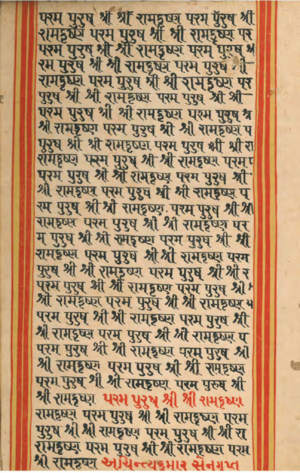 परम पुरुष श्री श्री रामकृष्ण परम पुरुष श्री
रामकृष्ण परम पुरुष श्री श्री रामकृष्ण पर
परम पुरुष श्री श्री रामकृष्ण परम पुरुष
रम पुरुष श्री श्री रामकृष्ण परम पुरुष श्री
रामकृष्ण परम पुरुष श्री श्री रामकृष्ण पर
पुरुष श्री श्री रामकृष्ण परम पुरुष श्री श्री
परम पुरुष श्री श्री रामकृष्ण परम पुरुष
श्री रामकृष्ण परम पुरुष श्री श्री रामकृष्ण प
पुरुष श्री श्री रामकृष्ण परम पुरुष श्री श्री रा
रामकृष्ण परम पुरुष श्री श्री रामकृष्ण परम प
परम पुरुष श्री श्री रामकृष्ण परम पुरुष श्री
श्री रामकृष्ण परम पुरुष श्री श्री रामकृष्ण प
रम पुरुष श्री श्री रामकृष्ण परम पुरुष श्री श्री
रामकृष्ण परम पुरुष श्री श्री रामकृष्ण पर
म पुरुष श्री श्री रामकृष्ण परम पुरुष श्री श्री
रामकृष्ण परम पुरुष श्री श्री रामकृष्ण परम
पुरुष श्री श्री रामकृष्ण परम पुरुष श्री श्री र
परम पुरुष श्री श्री रामकृष्ण परम पुरुष श्री
श्री रामकृष्ण परम पुरुष श्री श्री रामकृष्ण प
परम पुरुष श्री श्री रामकृष्ण परम पुरुष श्री
श्री रामकृष्ण परम पुरुष श्री श्री रामकृष्ण प
परम पुरुष श्री श्री रामकृष्ण परम पुरुष श्री
श्री रामकृष्ण परम पुरुष श्री श्री रामकृष्ण
परम पुरुष श्री श्री रामकृष्ण परम पुरुष श्री
श्री रामकृष्ण परम पुरुष श्री श्री रामकृष्ण
रामकृष्ण परम पुरुष श्री श्री रामकृष्ण परम
परम पुरुष श्री श्री रामकृष्ण पुरुष श्री श्री रा
रामकृष्ण परम पुरुष श्री श्री रामकृष्ण परम
श्री रामकृष्ण अचिन्त्यकुमार सेनगुप्त